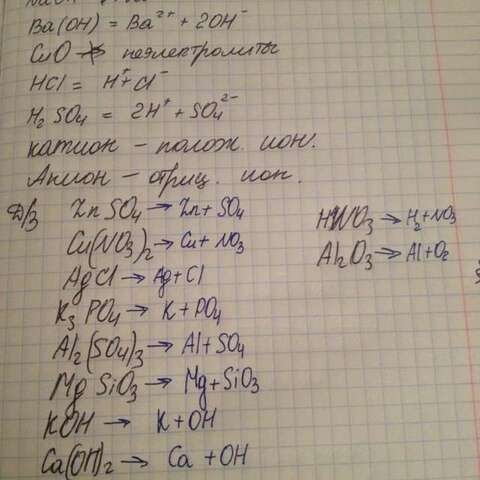 Ba(OH) = Ba²⁺ + 2OH⁻
CuO → неэлектролиты
HCl = H⁺ + Cl⁻
H₂SO₄ = 2H⁺ + SO₄²⁻
катион – полож. ион.
Анион – отриц. ион.
Д/з ZnSO₄ → Zn + SO₄
Cu(NO₃)₂ → Cu + NO₃
AgCl → Ag + Cl
K₃PO₄ → K + PO₄
Al₂(SO₄)₃ → Al + SO₄
MgSiO₃ → Mg + SiO₃
KOH → K + OH
Ca(OH)₂ → Ca + OH
HNO₃ → H₂ + NO₃
Al₂O₃ → Al + O₂